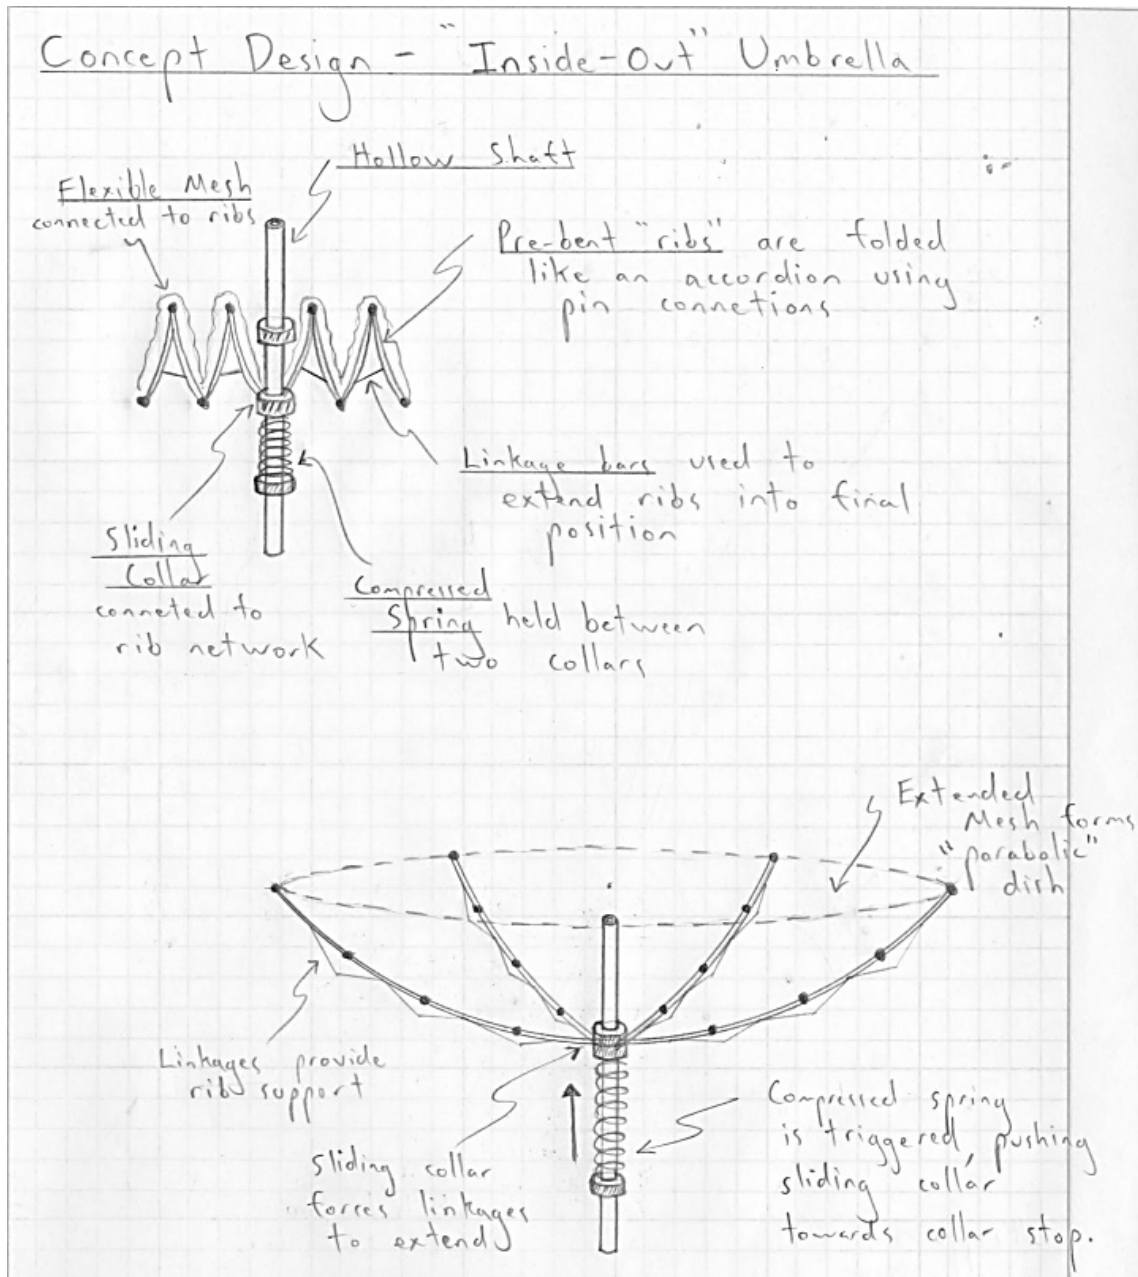 Concept Design - "Inside-Out" Umbrella
Hollow Shaft
Flexible Mesh
connected to ribs
Pre-bent "ribs" are folded
like an accordion using
pin connetions
Linkage bars used to
extend ribs into final
position
Sliding
Collar
conneted to
rib network
Compressed
Spring held between
two collars
Extended
Mesh forms
"parabolic"
dish
Linkages provide
rib support
Sliding collar
forces linkages
to extend
Compressed spring
is triggered, pushing
sliding collar
towards collar stop.